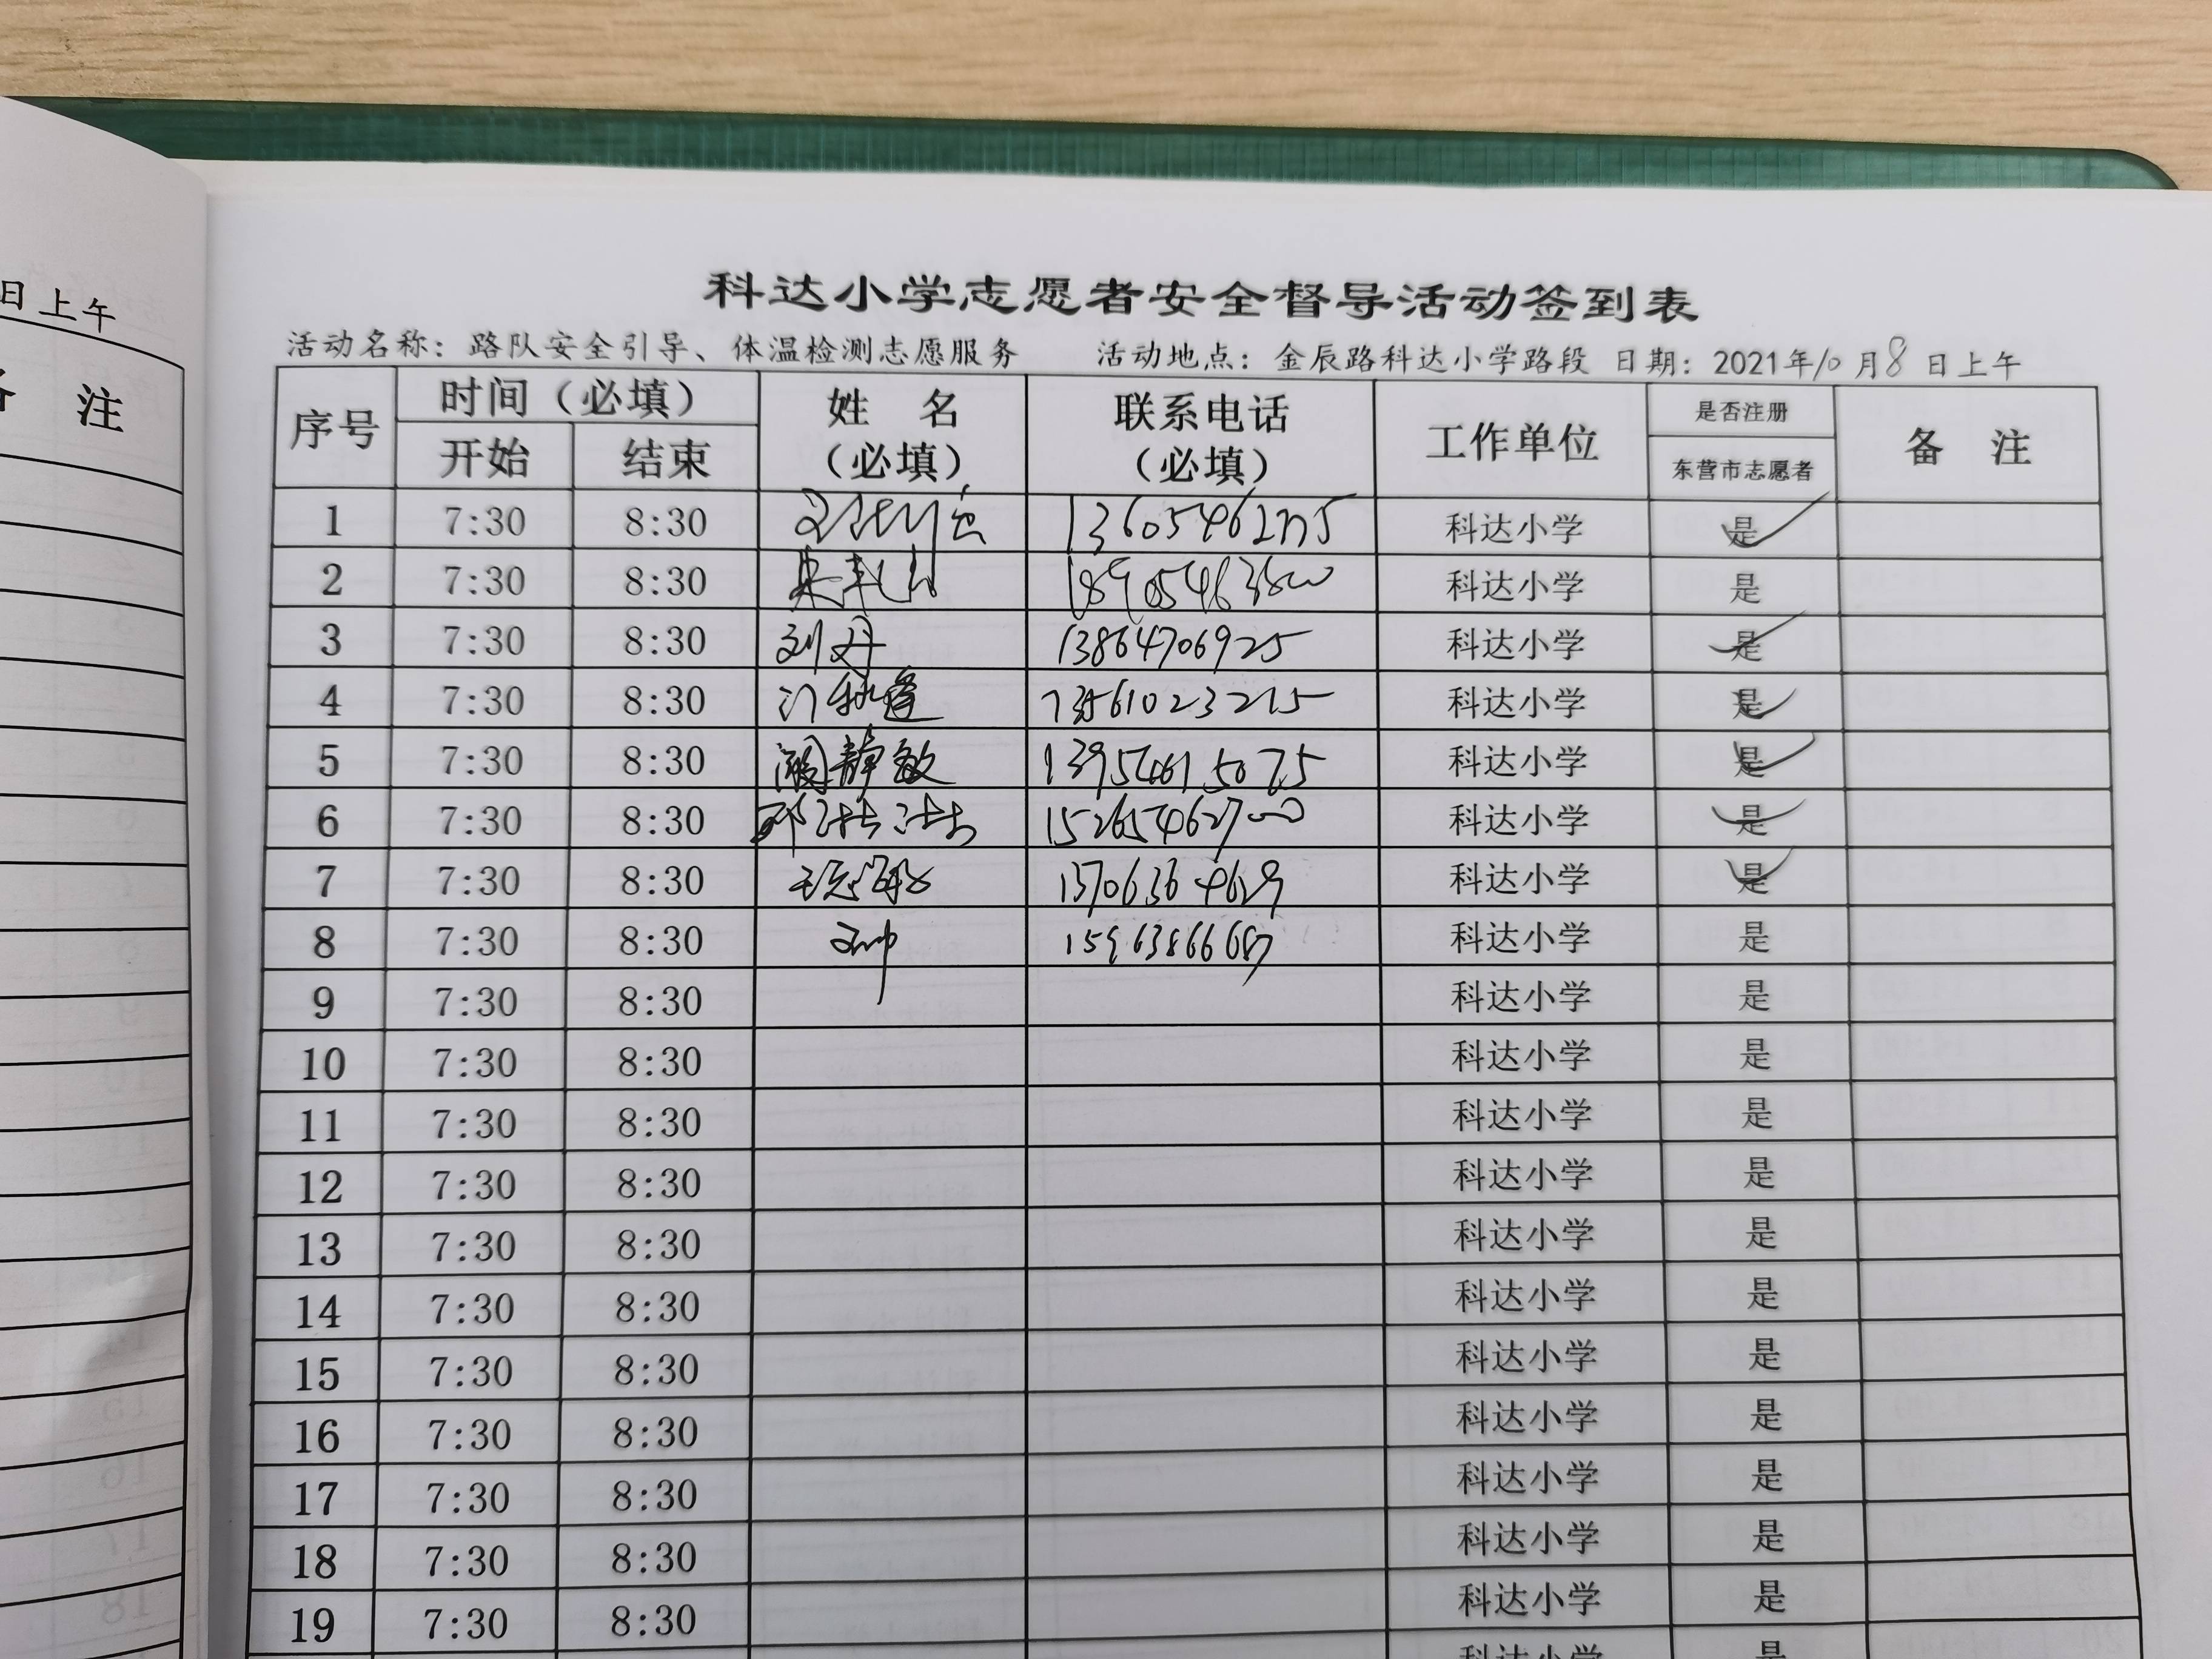 日上午
备 注
科达小学志愿者安全督导活动签到表
活动名称：路队安全引导、体温检测志愿服务 活动地点：金辰路科达小学路段 日期：2021年10月8日上午
序号 时间（必填） 姓 名 联系电话 工作单位 是否注册 备 注
开始 结束 （必填） （必填） 东营市志愿者
1 7:30 8:30 13605462775 科达小学 是
2 7:30 8:30 科达小学 是
3 7:30 8:30 刘丹 13864706925 科达小学 是
4 7:30 8:30 13561023215 科达小学 是
5 7:30 8:30 静敏 13954615075 科达小学 是
6 7:30 8:30 邓洁洁 15265462700 科达小学 是
7 7:30 8:30 13706364629 科达小学 是
8 7:30 8:30 科达小学 是
9 7:30 8:30 科达小学 是
10 7:30 8:30 科达小学 是
11 7:30 8:30 科达小学 是
12 7:30 8:30 科达小学 是
13 7:30 8:30 科达小学 是
14 7:30 8:30 科达小学 是
15 7:30 8:30 科达小学 是
16 7:30 8:30 科达小学 是
17 7:30 8:30 科达小学 是
18 7:30 8:30 科达小学 是
19 7:30 8:30 科达小学 是
科达小学 是